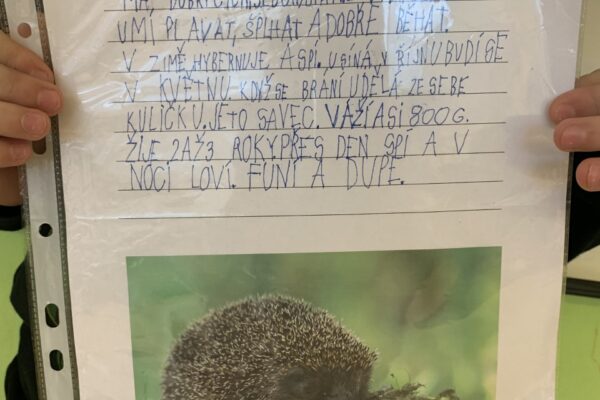 MÁ, DOBRÝ
UMÍ PLAVAT, ŠPLHAT A DOBŘE BĚHAT.
V ZIMĚ HYBERNUJE A SPÍ. USÍNÁ V ŘÍJNU BUDÍ SE
V KVĚTNU KDYŽ SE BRÁNÍ UDĚLÁ ZE SEBE
KULIČKU. JE TO SAVEC. VÁŽÍ ASI 800 G.
ŽIJE 2 AŽ 3 ROKY. PŘES DEN SPÍ A V
NOCI LOVÍ. FUNÍ A DUPE.